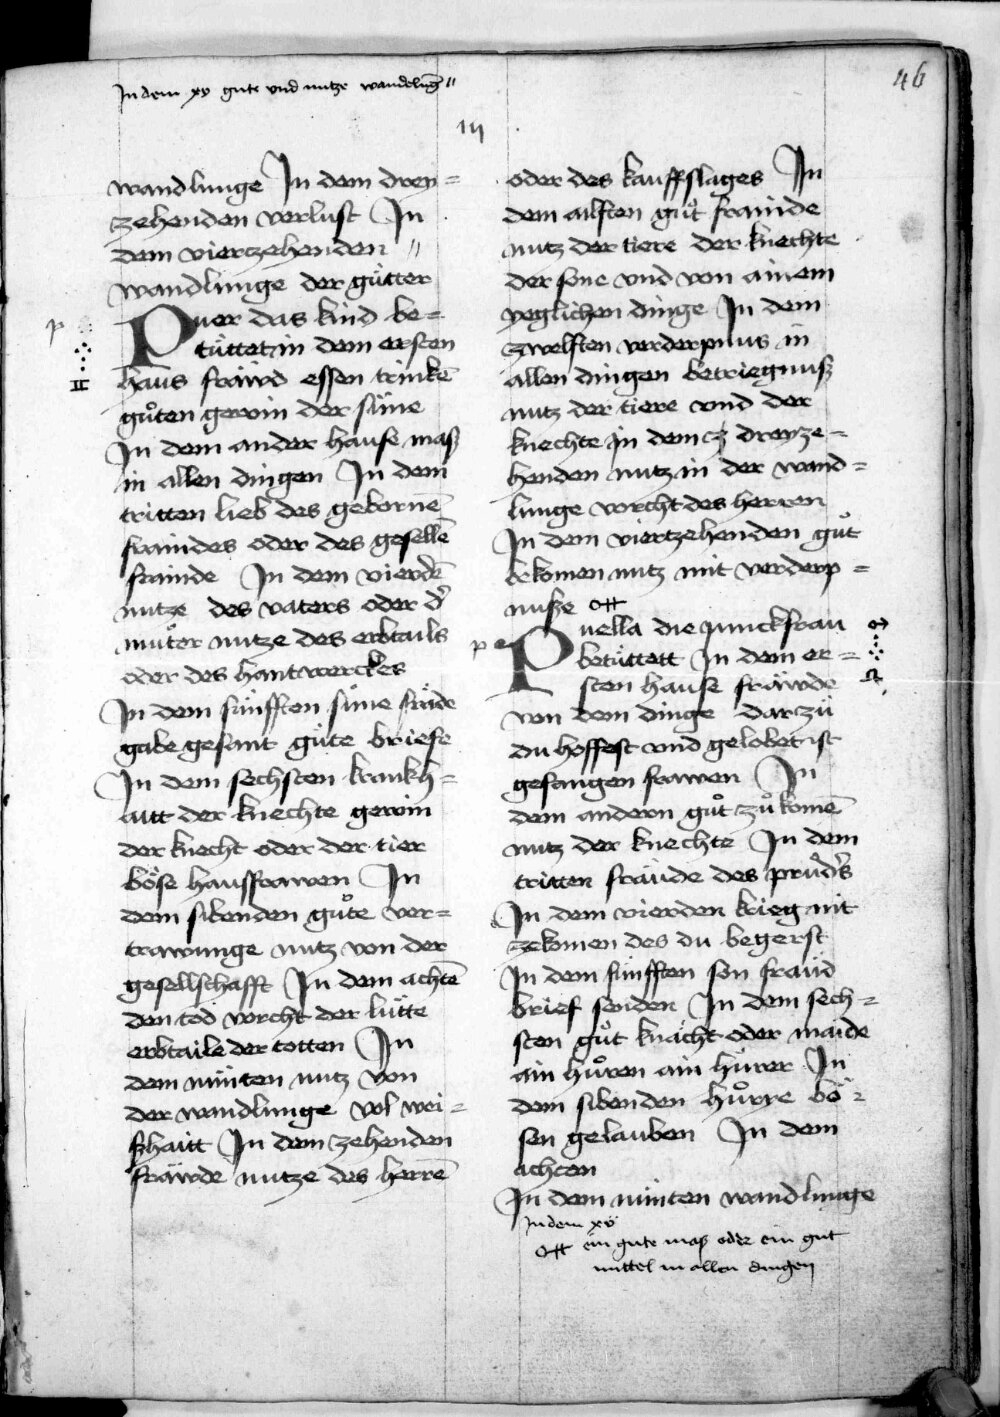 In dem xv gute vnd nutze wandelūg //
46
III
wandlunge In dem drey=
zehenden verlust In
dem viertzehenden //
wandlunge der gütter
p
Puer das kind be=
tüttet in dem ersten
haus fräwd essen trinkē
gůten gewin der süne
In dem ander hause mass
in allen dingen In dem
tritten lieb des gebornē
fraindes oder des gesellē
frainde In dem vierdē
nutze des vaters oder d'
můter nutze des erbtails
oder des hantwerckes
In dem fünfften süne fräde
gabe gesant gůte briefe
In dem sechsten krankh=
aitt der knechte gewin
der knecht oder der tier
böse hausfrawen In
dem sibenden gůte ver=
trawunge nutz von der
gesellschafft In dem achtē
den tod vorcht der lütte
erbtaile der totten In
dem nünten nutz von
der wandlunge vol wei=
sshaitt In dem zehenden
fräwde nutze des herrē
oder des kauffslages In
dem ailften gůt frainde
nutz der tiere der knechte
der sone vnd von ainem
yeglichen dinge In dem
zwelften verderpnus in
allen dingen betriegnuss
nutz der tiere vnd der
knechte In dem dreyze=
henden nutz in der wand=
lunge vorcht des herren
In dem viertzehenden gůt
bekomen nutz mit verderp=
nusse
Puella die junckfrau
betüttett In dem er=
sten hause fräwde
von dem dinge darzů
du hoffest vnd gelobet ist
gefangen frawen In
dem andern gůt zů komē
nutz der knechte In dem
tritten fräude des průd's
In dem vierden krieg nit
zekomen des du begerst
In dem fünfften son fraüd
brief senden In dem sech=
sten gůt knächt oder maide
ain hůren ain hurer In
dem sibenden hůrre bö=
sen gelauben In dem
achten
In dem nünten wandlunge
In dem xv
ein gute mass oder ein gut
mittel in allen dingen